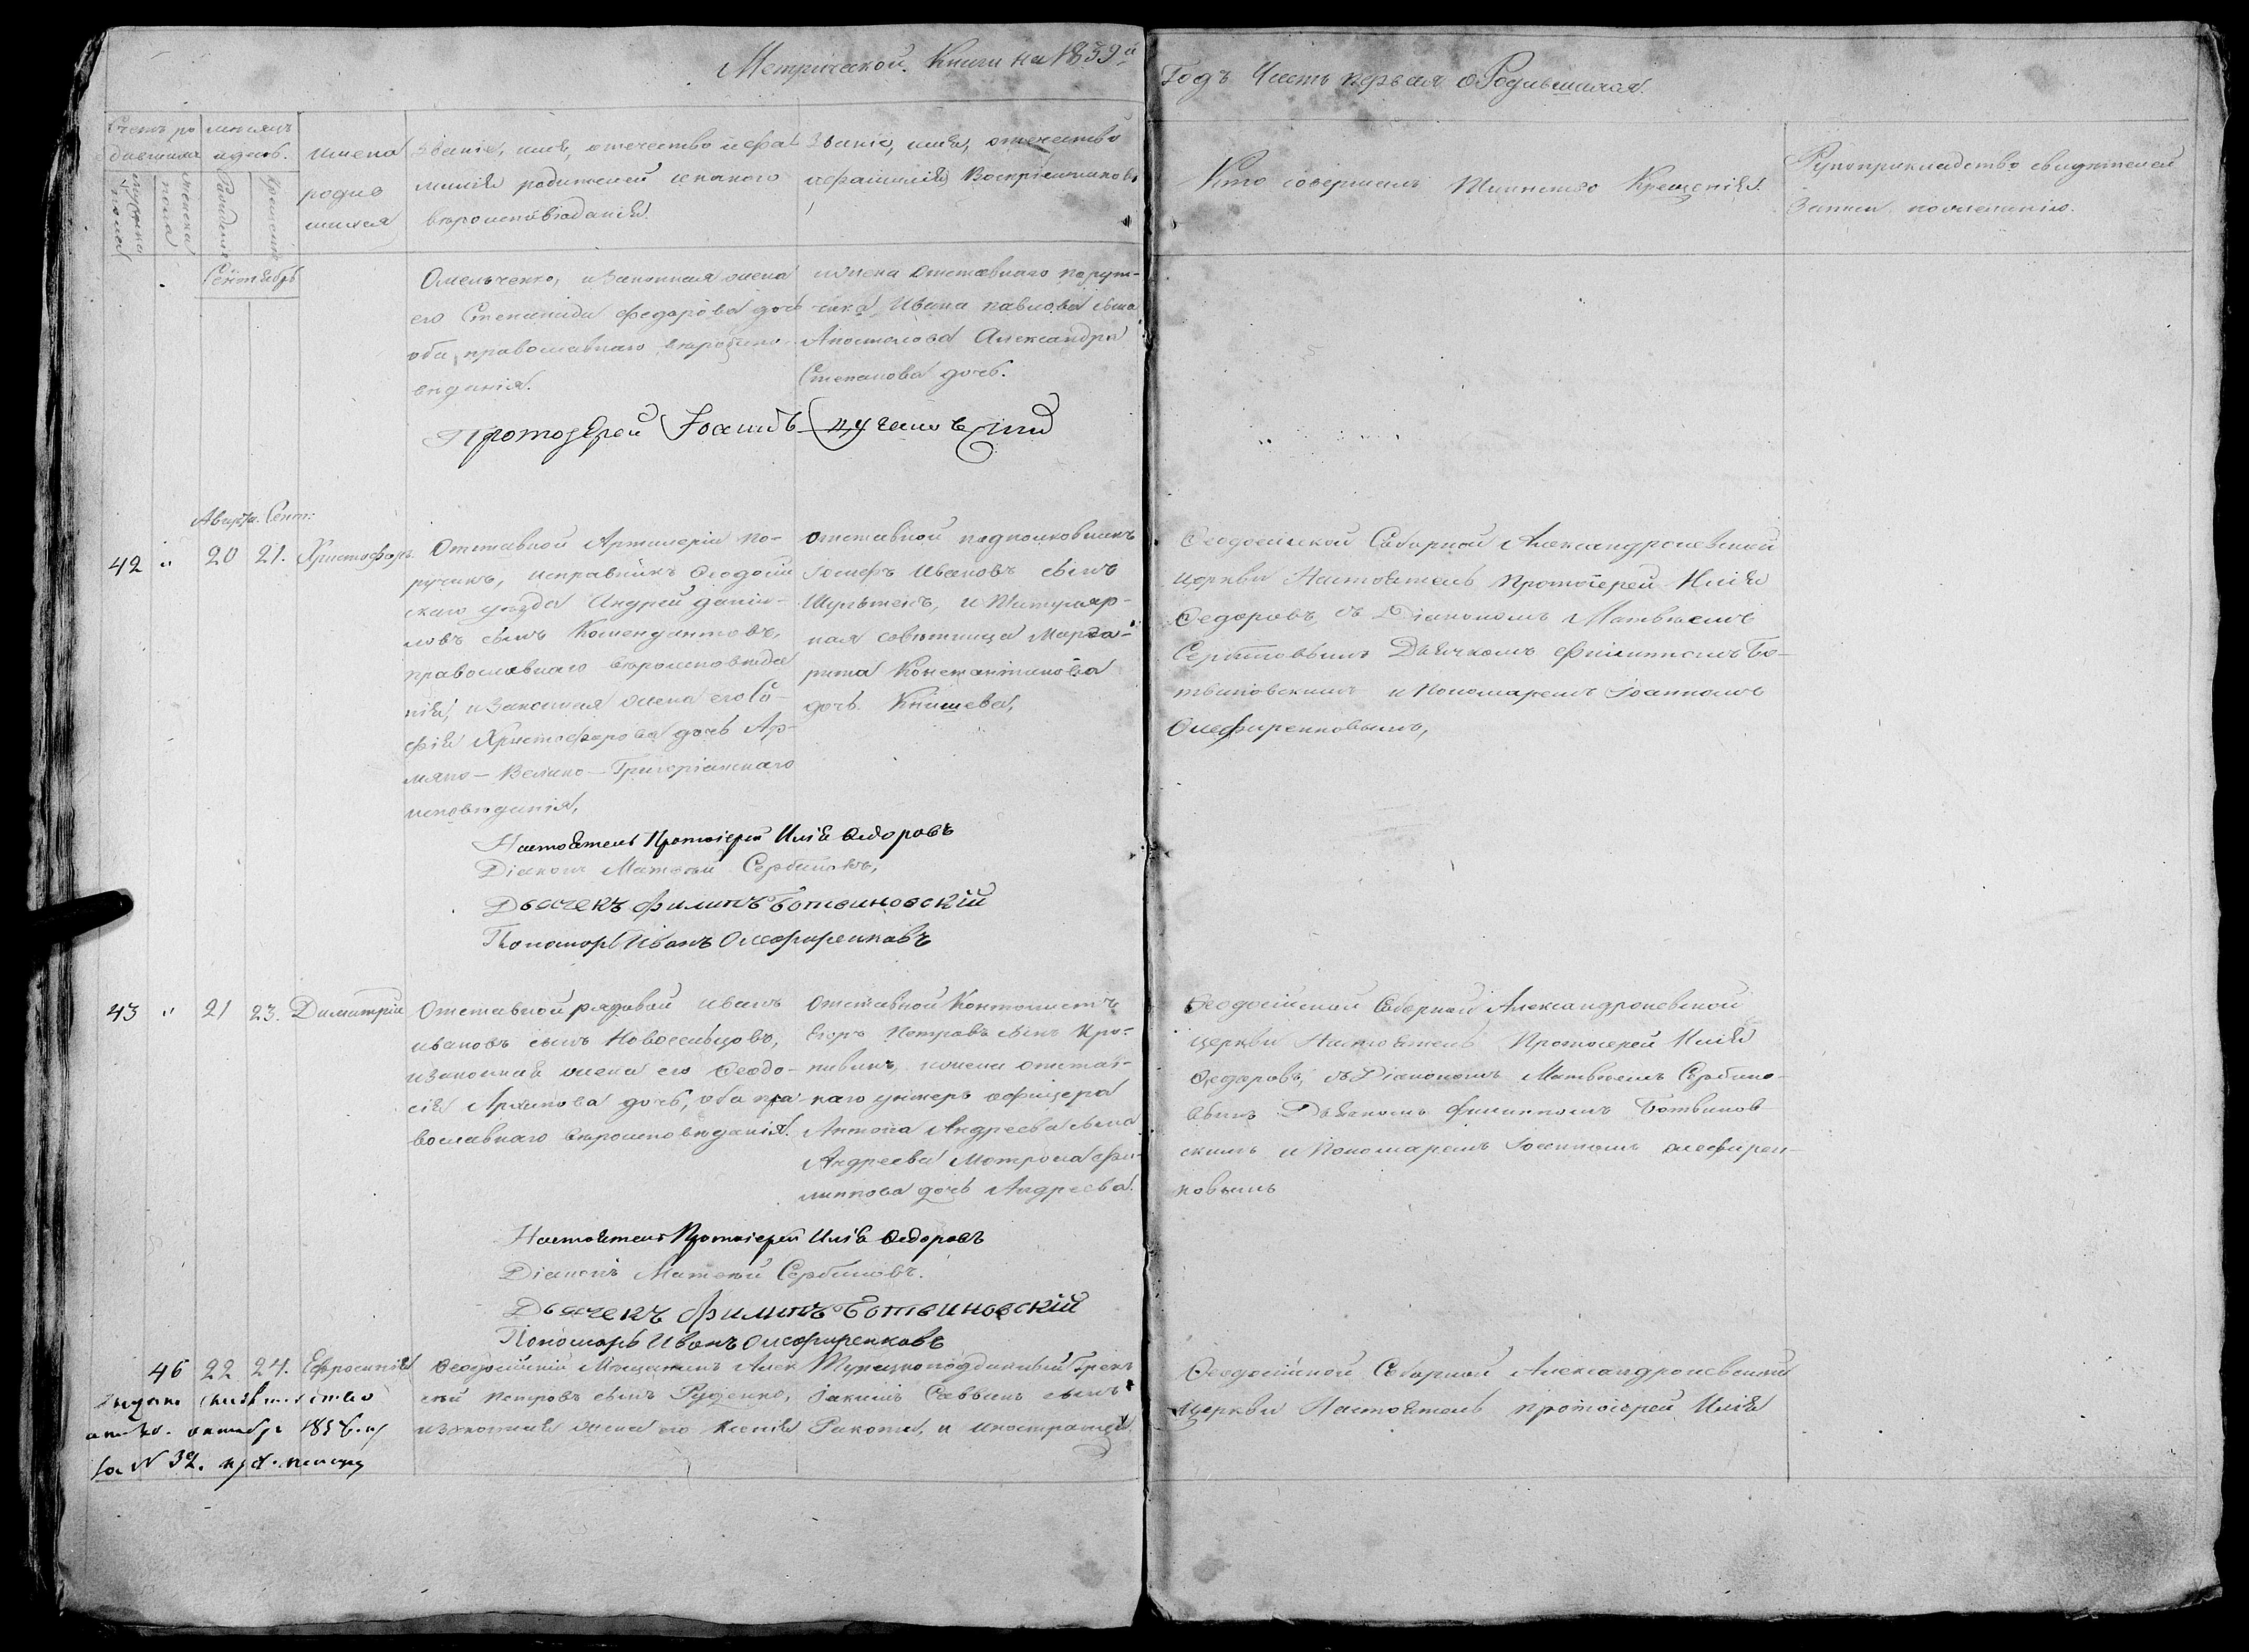 Метрической Книги на 1839й
Годъ Часть первая о Родившихся.
Счетъ ро
дившихся
мужеска
пола
женска
пола
месяцъ
и день.
Рождения
Крещения
имена
родив
шихся
Званіе, имя, отечество и фа
милія родителей и какого
вероисповеданія.
Званіе, имя, отечество
и фамилія Воспріемниковъ
Кто совершалъ Таинство Крещенія.
Рукоприкладство свидетелей
записи по желанію.
Сентябрь
Омельченко, и законная жена
его Степанида Федорова дочь
оба православнаго вероиспо
веданія.
и жена отставнаго порут-
чика Ивана Павлова сына
Апостолова Александра
Степанова дочь.
Протоіерей Іоаннъ
Августа. Сент:
42 " 20 21. Христофоръ
Отставной Артилеріи По-
ручикъ, исправникъ Феодосій
скаго уезда Андрей Даніи-
ловъ сынъ Комендантовъ,
православнаго вероисповеда
нія, и законная жена его Со-
фія Христофорова дочь Ар-
мяно-Велико-Григоріанскаго
исповеданія,
отставной подполковникъ
Іосифъ Ивановъ сынъ
Шультенъ, и Титуляр-
ная советница Марга-
рита Константинова
дочь Книшева,
Феодосійской Соборной Александроневской
церкви Настоятель Протоіерей Илія
Федоровъ, съ Діакономъ Матвеемъ
Сербиновымъ Дьячкомъ Филиппомъ Бо-
твиновскимъ и Пономаремъ Іоанномъ
Олефиренковымъ,
Настоятель Протоіерей Илія Федоровъ
Діаконъ Матфей Сербиновъ,
Дьячекъ Филипъ Ботвиновскій
Пономарь Иванъ Олефиренковъ
43 " 21 23. Димитрій
Отставной рядовой Иванъ
Ивановъ сынъ Новосельцовъ,
и законная жена его Феодо-
сія Архипова дочь, оба пра-
вославнаго вероисповеданія.
Отставной Контонистъ
Егоръ Петровъ сынъ Кро-
пивинъ, и жена отстав-
наго унтеръ офицера
Антона Андреева сына
Андреева Мотрона Фи-
липпова дочь Андреева.
Феодосійской Соборной Александроневской
церкви Настоятель Протоіерей Илія
Федоровъ, съ Діакономъ Матвеемъ Сербино-
вымъ Дьячкомъ Филиппомъ Ботвинов-
скимъ и Пономаремъ Іоанномъ Олефирен-
ковымъ
Настоятель Протоіерей Илія Федоровъ
Діаконъ Матфей Сербиновъ.
Дьячекъ Филипъ Ботвиновскій
Пономарь Иванъ Олефиренковъ
46 22 24. Ефросинія
Феодосійскій Мещанинъ Алек
сей Петровъ сынъ Руденко,
и законная жена его Ксенія
Турецкоподданный Грекъ
Іакимъ Саввинъ сынъ
Ракота, и иностранца
Феодосійской Соборной Александроневской
церкви Настоятель Протоіерей Илія
октября
за N 32.